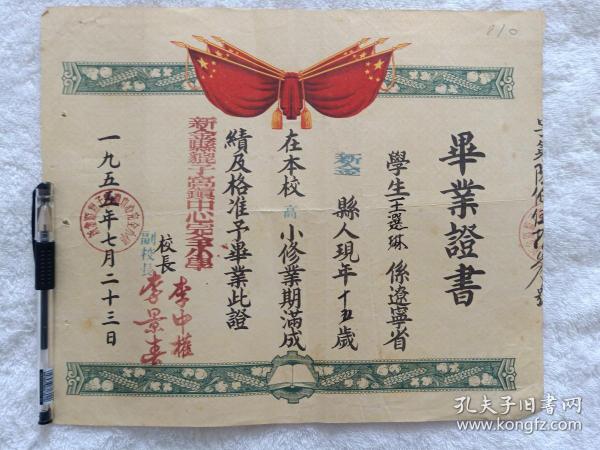 畢業證書
學生王選琳係遼寧省
新金縣人現年十五歲
在本校高小修業期滿成
績及格准予畢業此證
新金縣貔子窩鎮中心完全小學
校長 李中權
副校長 李景春
一九五五年七月二十三日
810
孔夫子旧书网
www.kongfz.com